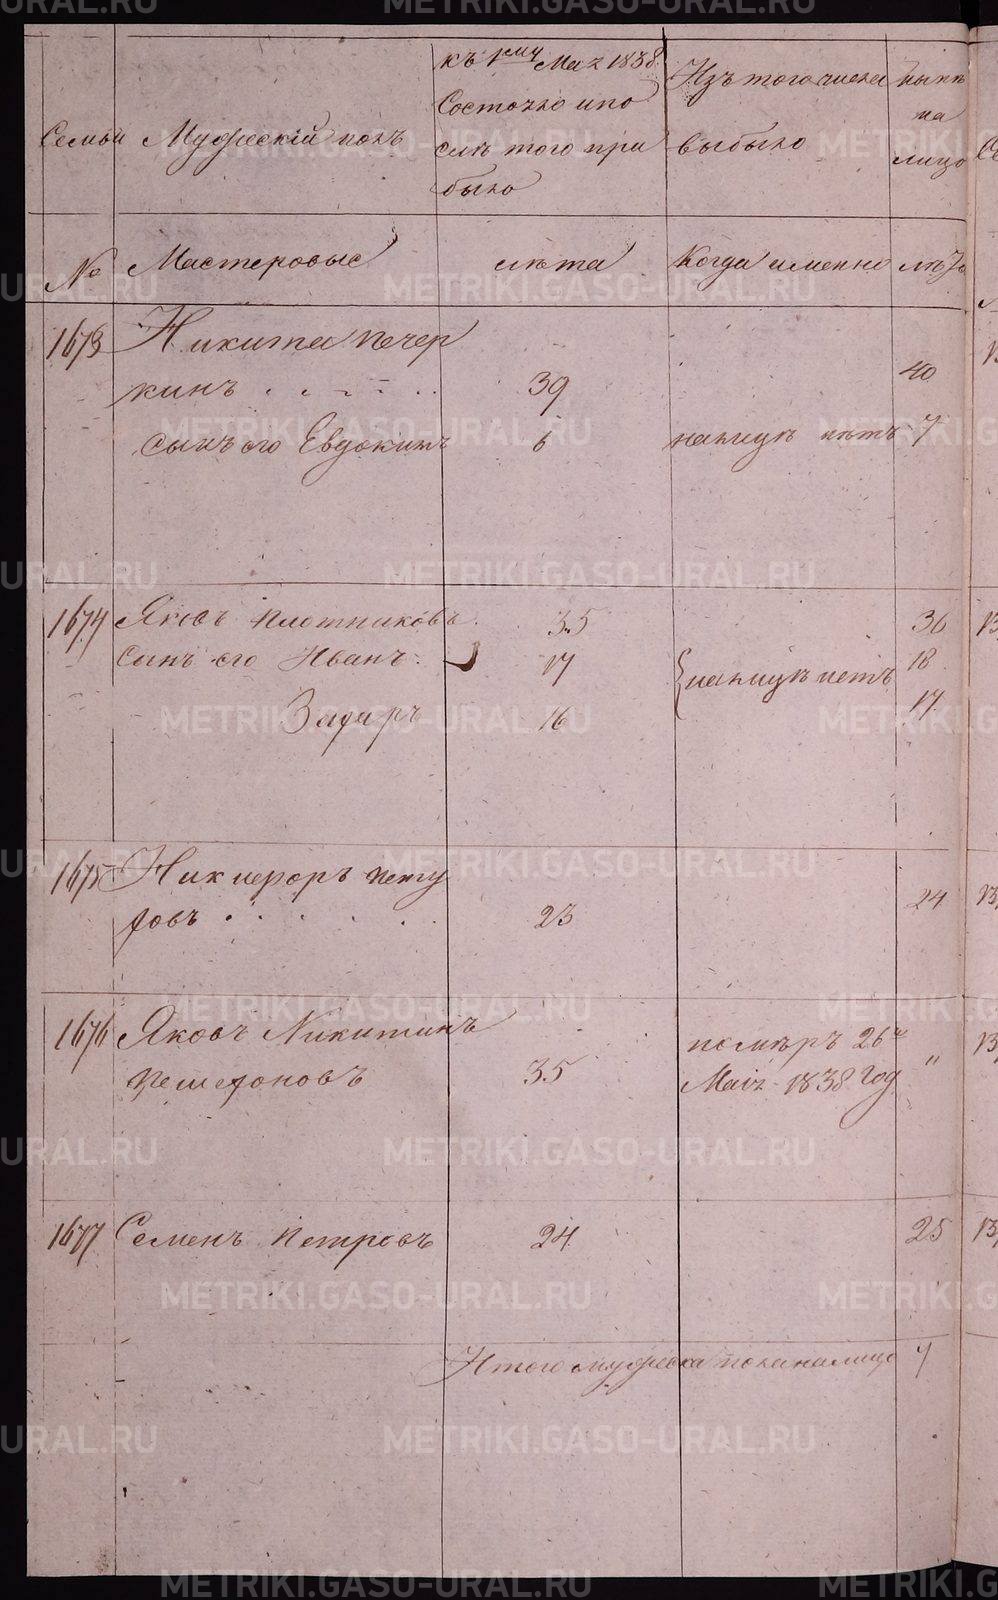 Семьи
Мужескій полъ
къ 1му Мая 1838
Состояло и по
слѣ того при
было
Изъ того числа
выбыло
нынѣ
на
лицо
№
Мастеровые
лѣта
Когда именно
лѣта
1673
Никита Печер
кинъ
39
40
сынъ его Евдокимъ
6
налицѣ нѣтъ
7
1674
Яковъ Плотниковъ
35
36
сынъ его Иванъ
17
налицѣ нетъ
18
Захаръ
16
17
1675
Никифоръ Пету
ховъ
23
24
1676
Яковъ Никитинъ
35
помѣръ 26го
Маія 1838 год
"
1677
Семенъ Петровъ
24
25
Итого мужеска пола налицо 7
METRIKI.GASO-URAL.RU